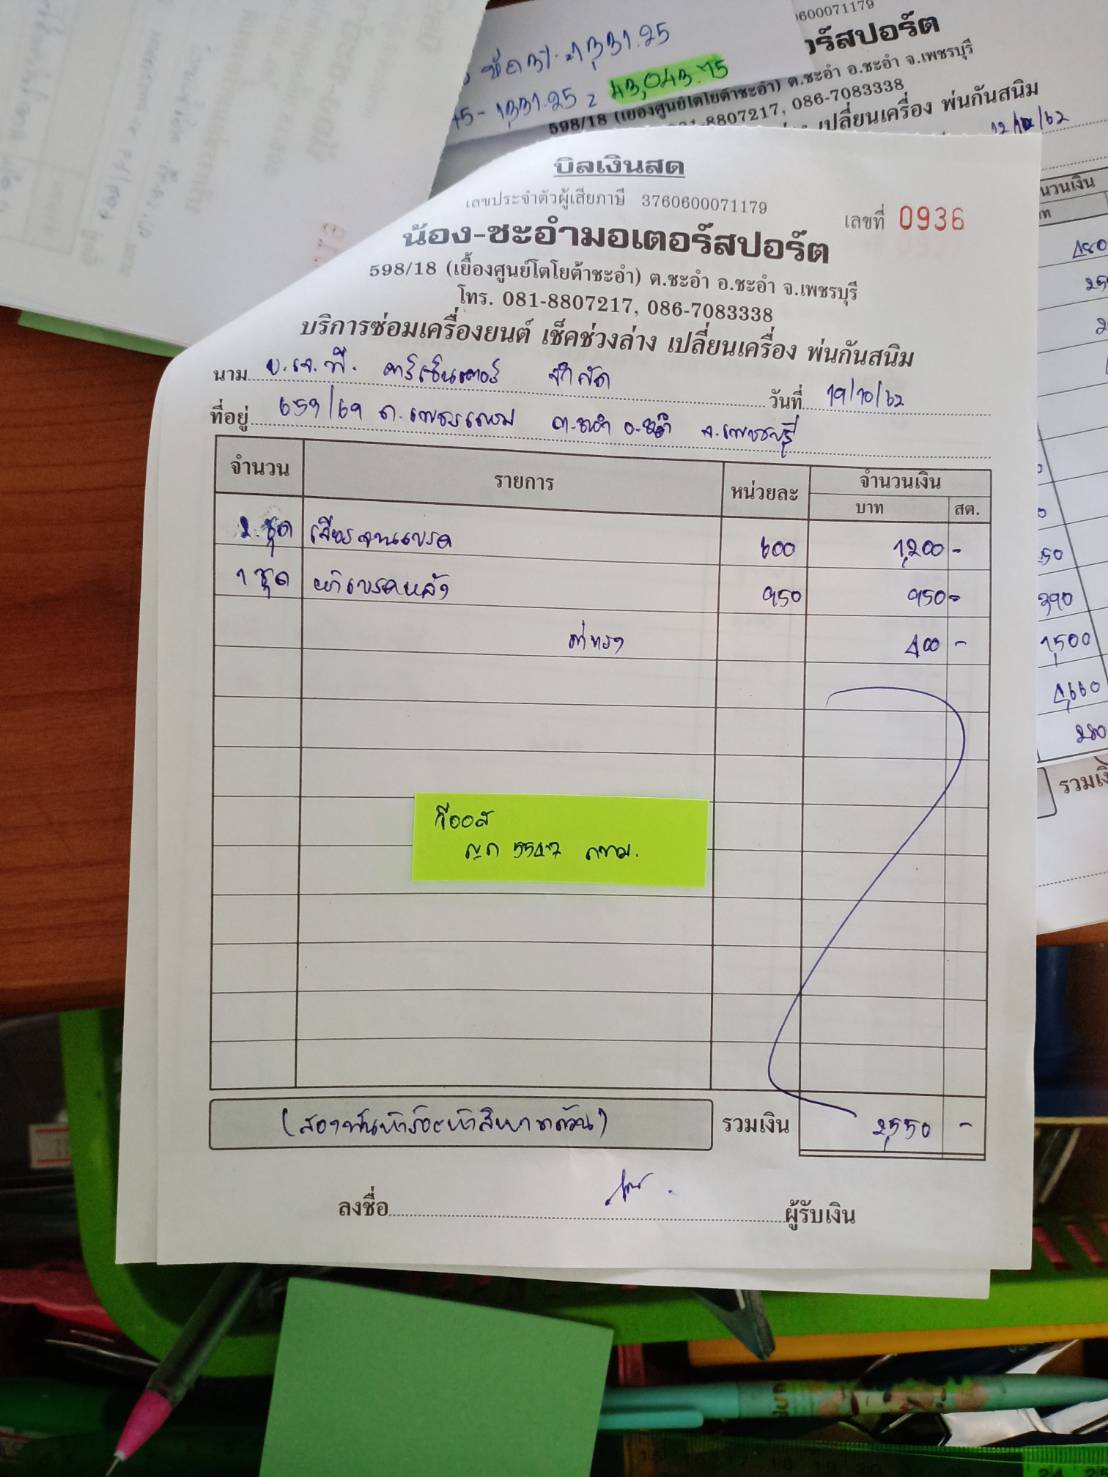 ชัก 3% = 1,331.25
45 - 1,331.25 = 43,043.75
600071179
ร์สปอร์ต
598/18 (เยื้องศูนย์โตโยต้าชะอำ) ต.ชะอำ อ.ชะอำ จ.เพชรบุรี
8807217, 086-7083338
เปลี่ยนเครื่อง พ่นกันสนิม
บิลเงินสด
เลขประจำตัวผู้เสียภาษี 3760600071179
เลขที่ 0936
น้อง-ชะอำมอเตอร์สปอร์ต
598/18 (เยื้องศูนย์โตโยต้าชะอำ) ต.ชะอำ อ.ชะอำ จ.เพชรบุรี
โทร. 081-8807217, 086-7083338
บริการซ่อมเครื่องยนต์ เช็คช่วงล่าง เปลี่ยนเครื่อง พ่นกันสนิม
นาม บ.เจ.พี. คาร์เซ็นเตอร์ จำกัด วันที่ 19/10/62
ที่อยู่ 659/69 ถ.เพชรเกษม ต.ชะอำ อ.ชะอำ จ.เพชรบุรี
จำนวน รายการ หน่วยละ จำนวนเงิน
บาท สต.
2 ชุด เจียรจานเบรค 600 1,200 -
1 ชุด ผ้าเบรคหลัง 950 950 -
ค่าแรง 400 -
วีออส
ญก 5547 กทม.
(สองพันห้าร้อยห้าสิบบาทถ้วน) รวมเงิน 2,550 -
ลงชื่อ ผู้รับเงิน
นวนเงิน
390
1,500
4,660
280
รวมเงิ